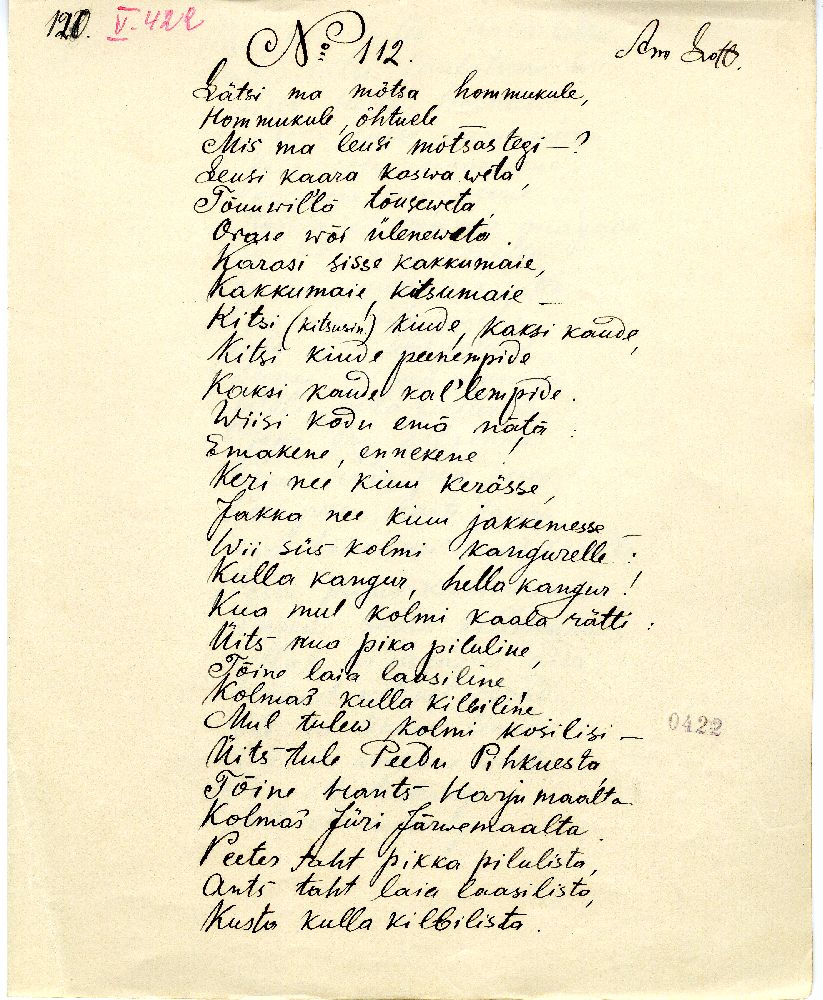 120. V. 422
No 112.
Lätsi ma mõtsa hommukule,
Hommukule, õhtuele
Mis ma leusi mõtsastegi –?
Leusi kaara kaswaweta,
Tõuuwillä tõuseweta,
Orase wõi üleneweta.
Karasi sisse kakkumaie,
Kakkumaie, kitsumaie –
Kitsi (kitsusin) kiude, kaksi kaude,
Kitsi kiude peenempide
Kaksi kaude kal'lempide.
Wiisi kodu emä nätä:
Emakene, ennekene!
Keri nee kiuu kerässe,
Jakka nee kiuu jakkemesse –
Wii siis kolmi kangurelle:
Kulla kangur, hella kangur!
Kua mul kolmi kaala rätti:
Üits kua pika piluline,
Tõine laia laasiline
Kolmas kulla kilbiline
Mul tulew kolmi kosilisi –
0422
Üits tule Peedu Pihkuesta,
Tõine Hants Harjumaalta
Kolmas Jüri Järwemaalta.
Peeter taht pikka pilulista,
Ants taht laia laasilista,
Kusta kulla kilbilista.